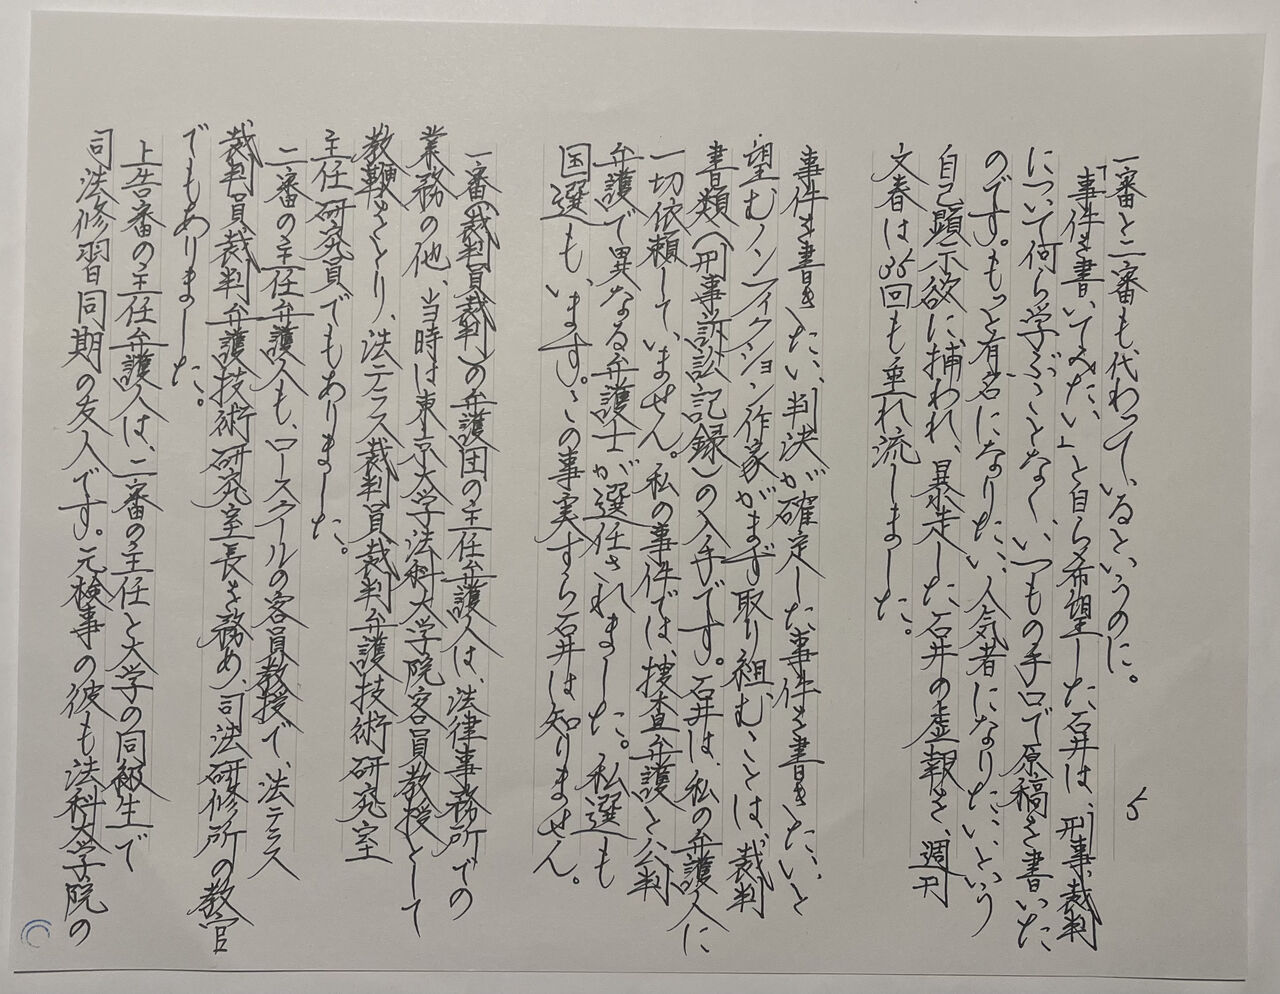 5
一審と二審も代わっているというのに。
「事件を書いてみたい」と自ら希望した石井は、刑事裁判
について何ら学ぶことなく、いつもの手口で原稿を書いた
のです。もっと有名になりたい、人気者になりたいという
自己顕示欲に捕われ、暴走した石井の虚報を、週刊
文春は35回も垂れ流しました。
事件を書きたい、判決が確定した事件を書きたいと
望むノンフィクション作家がまず取り組むことは、裁判
書類(刑事訴訟記録)の入手です。石井は、私の弁護人に
一切依頼していません。私の事件では、捜査弁護と公判
弁護で異なる弁護士が選任されました。私選も
国選もいます。この事実すら石井は知りません。
一審(裁判員裁判)の弁護団の主任弁護人は、法律事務所での
業務の他、当時は東京大学法科大学院客員教授として
教鞭をとり、法テラス裁判員裁判弁護技術研究室
主任研究員でもありました。
二審の主任弁護人も、ロースクールの客員教授で、法テラス
裁判員裁判弁護技術研究室長を務め、司法研修所の教官
でもありました。
上告審の主任弁護人は、二審の主任と大学の同級生で
司法修習同期の友人です。元検事の彼も法科大学院の